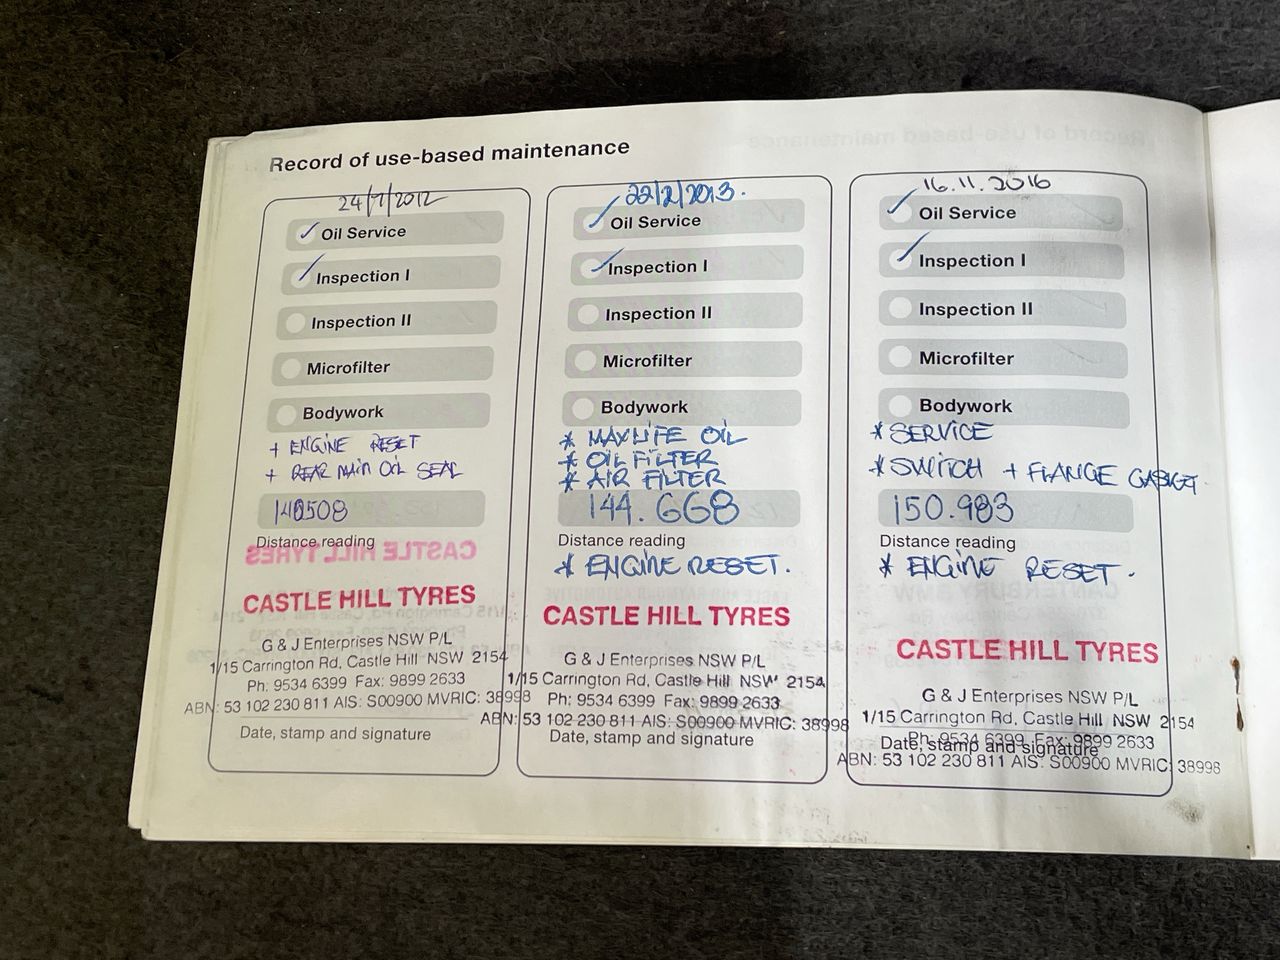 Record of use-based maintenance
24/7/2012
Oil Service
Inspection I
Inspection II
Microfilter
Bodywork
+ ENGINE RESET
+ REAR MAIN OIL SEAL
140508
Distance reading
CASTLE HILL TYRES
G & J Enterprises NSW P/L
1/15 Carrington Rd, Castle Hill NSW 2154
Ph: 9534 6399 Fax: 9899 2633
ABN: 53 102 230 811 AIS: S00900 MVRIC: 38998
Date, stamp and signature
22/2/2013.
Oil Service
Inspection I
Inspection II
Microfilter
Bodywork
* MAXLIFE OIL
* OIL FILTER
* AIR FILTER
144.668
Distance reading
* ENGINE RESET.
CASTLE HILL TYRES
G & J Enterprises NSW P/L
1/15 Carrington Rd, Castle Hill NSW 2154
Ph: 9534 6399 Fax: 9899 2633
ABN: 53 102 230 811 AIS: S00900 MVRIC: 38998
Date, stamp and signature
16.11.2016
Oil Service
Inspection I
Inspection II
Microfilter
Bodywork
* SERVICE
* SWITCH + FLANGE GASKET.
150.983
Distance reading
* ENGINE RESET.
CASTLE HILL TYRES
G & J Enterprises NSW P/L
1/15 Carrington Rd, Castle Hill NSW 2154
Ph: 9534 6399 Fax: 9899 2633
Date, stamp and signature
ABN: 53 102 230 811 AIS: S00900 MVRIC: 38998